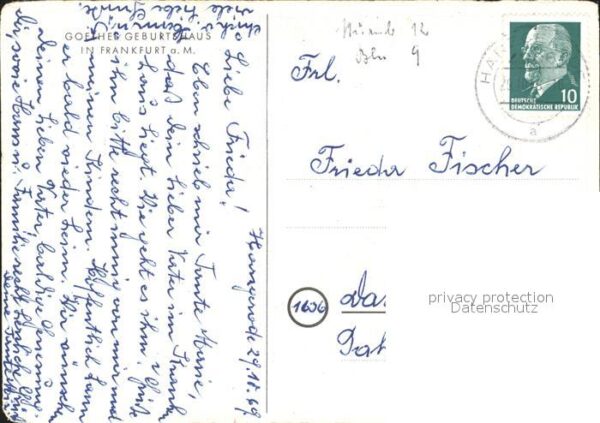 GOETHES GEBURTSHAUS
IN FRANKFURT a. M.
Harzgerode 29. 11. 69
Liebe Frieda!
Eben schrieb mir Tante Marie,
daß dein lieber Vater im Kranken
haus liegt. Wie geht es ihm?
ihn bitte recht innig von mir und
meinen Kindern. Hoffentlich kann
er bald wieder heim. Wir wünschen
Deinem lieben Vater baldige Genesung.
Dir, sowie Hans u. Familie recht herzliche
Deine Tante
viele liebe Grüße
12
9
HAR
DEUTSCHE
DEMOKRATISCHE REPUBLIK
10
a
Frl.
Frieda Fischer
1606
privacy protection
Datenschutz